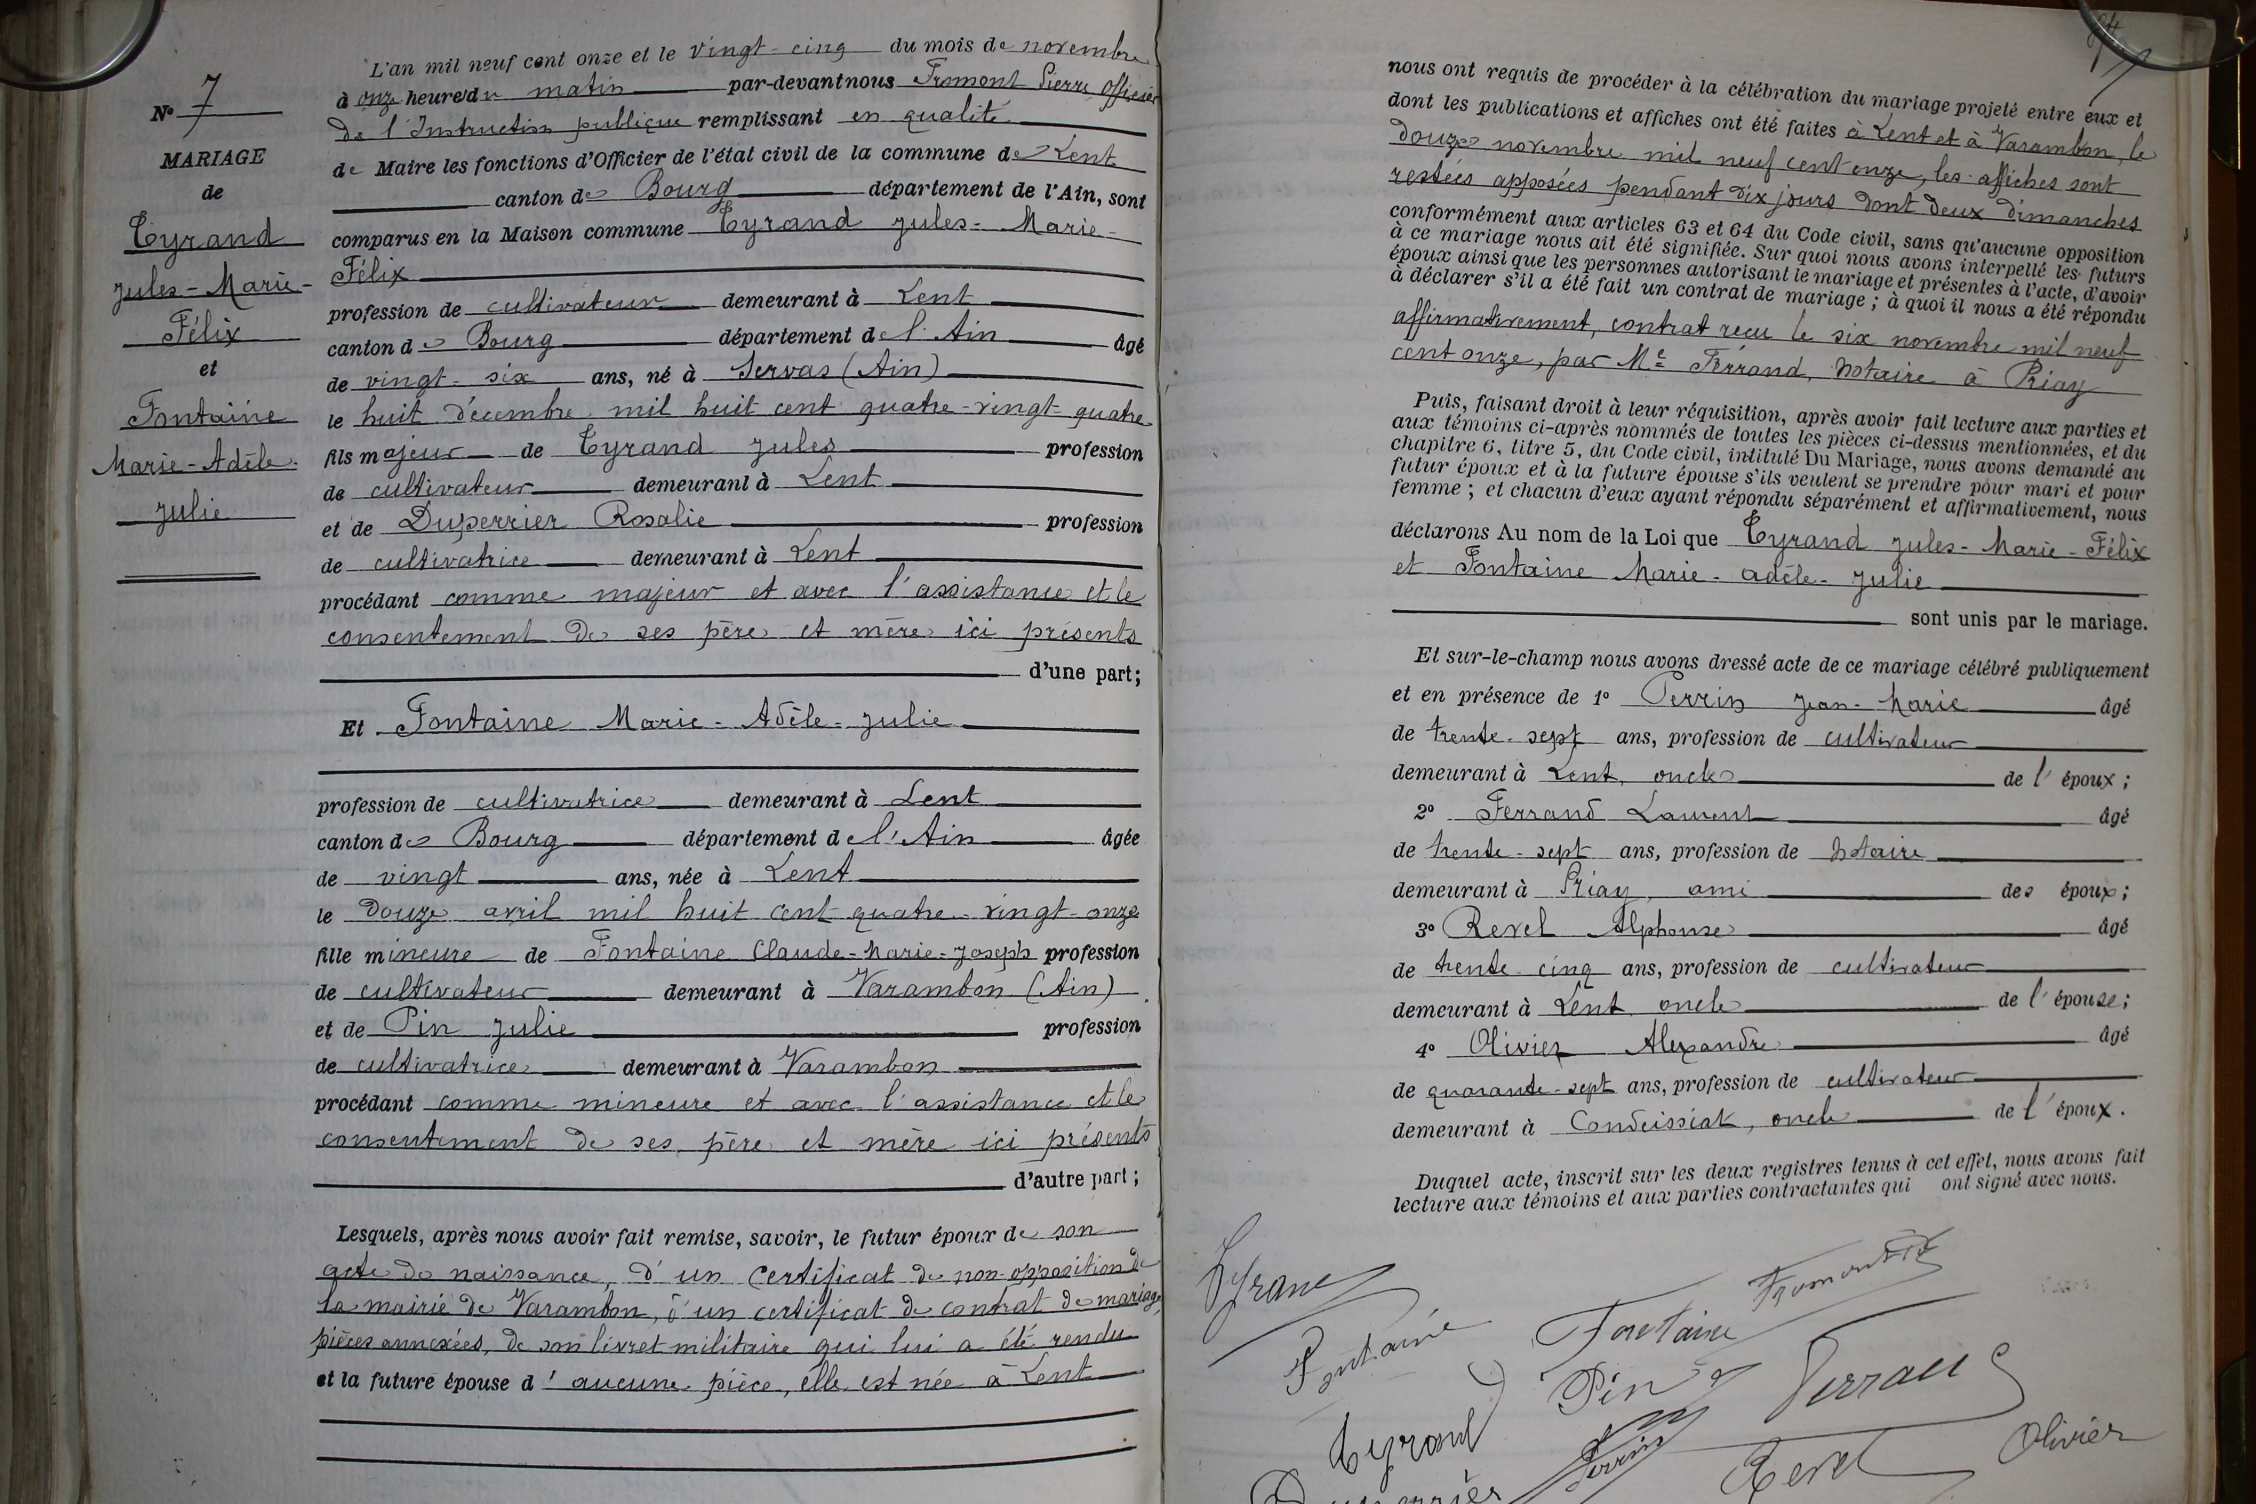 N° 7
MARIAGE
de
Tyrand
Jules-Marie-
Félix
et
Fontaine
Marie-Adèle-
Julie
L'an mil neuf cent onze et le vingt-cinq du mois de novembre
à onze heure du matin par-devant nous Fromont Pierre officier
de l'Instruction publique remplissant en qualité
de Maire les fonctions d'Officier de l'état civil de la commune de Lent
canton de Bourg département de l'Ain, sont
comparus en la Maison commune Tyrand Jules-Marie-
Félix
profession de cultivateur demeurant à Lent
canton de Bourg département de l'Ain âgé
de vingt-six ans, né à Servas (Ain)
le huit décembre mil huit cent quatre-vingt-quatre
fils majeur de Tyrand Jules profession
de cultivateur demeurant à Lent
et de Duperrier Rosalie profession
de cultivatrice demeurant à Lent
procédant comme majeur et avec l'assistance et le
consentement de ses père et mère ici présents
d'une part;
Et Fontaine Marie-Adèle-Julie
profession de cultivatrice demeurant à Lent
canton de Bourg département de l'Ain âgée
de vingt ans, née à Lent
le douze avril mil huit cent quatre-vingt-onze
fille mineure de Fontaine Claude-Marie-Joseph profession
de cultivateur demeurant à Varambon (Ain)
et de Pin Julie profession
de cultivatrice demeurant à Varambon
procédant comme mineure et avec l'assistance et le
consentement de ses père et mère ici présents
d'autre part;
Lesquels, après nous avoir fait remise, savoir, le futur époux de son
acte de naissance, d'un certificat de non-opposition de
la mairie de Varambon, d'un certificat de contrat de mariage,
pièces annexées, de son livret militaire qui lui a été rendu
et la future épouse d'aucune pièce, elle est née à Lent
nous ont requis de procéder à la célébration du mariage projeté entre eux et
dont les publications et affiches ont été faites à Lent et à Varambon, le
douze novembre mil neuf cent onze, les affiches sont
restées apposées pendant dix jours dont deux dimanches
conformément aux articles 63 et 64 du Code civil, sans qu'aucune opposition
à ce mariage nous ait été signifiée. Sur quoi nous avons interpellé les futurs
époux ainsi que les personnes autorisant le mariage et présentes à l'acte, d'avoir
à déclarer s'il a été fait un contrat de mariage; à quoi il nous a été répondu
affirmativement, contrat reçu le six novembre mil neuf
cent onze, par Me Férrand, notaire à Priay
Puis, faisant droit à leur réquisition, après avoir fait lecture aux parties et
aux témoins ci-après nommés de toutes les pièces ci-dessus mentionnées, et du
chapitre 6, titre 5, du Code civil, intitulé Du Mariage, nous avons demandé au
futur époux et à la future épouse s'ils veulent se prendre pour mari et pour
femme; et chacun d'eux ayant répondu séparément et affirmativement, nous
déclarons Au nom de la Loi que Tyrand Jules-Marie-Félix
et Fontaine Marie-Adèle-Julie
sont unis par le mariage.
Et sur-le-champ nous avons dressé acte de ce mariage célébré publiquement
et en présence de 1° Perrin Jean-Marie âgé
de trente-sept ans, profession de cultivateur
demeurant à Lent, oncle de l'époux;
2° Ferrand Laurent âgé
de trente-sept ans, profession de notaire
demeurant à Priay, ami des époux;
3° Revel Alphonse âgé
de trente-cinq ans, profession de cultivateur
demeurant à Lent, oncle de l'épouse;
4° Olivier Alexandre âgé
de quarante-sept ans, profession de cultivateur
demeurant à Condeissiat, oncle de l'époux.
Duquel acte, inscrit sur les deux registres tenus à cet effet, nous avons fait
lecture aux témoins et aux parties contractantes qui ont signé avec nous.
Tyrand
Fontaine
Fontaine
Fromont
Tyrand
Pin
Ferrand
Perrin
Revel
Olivier